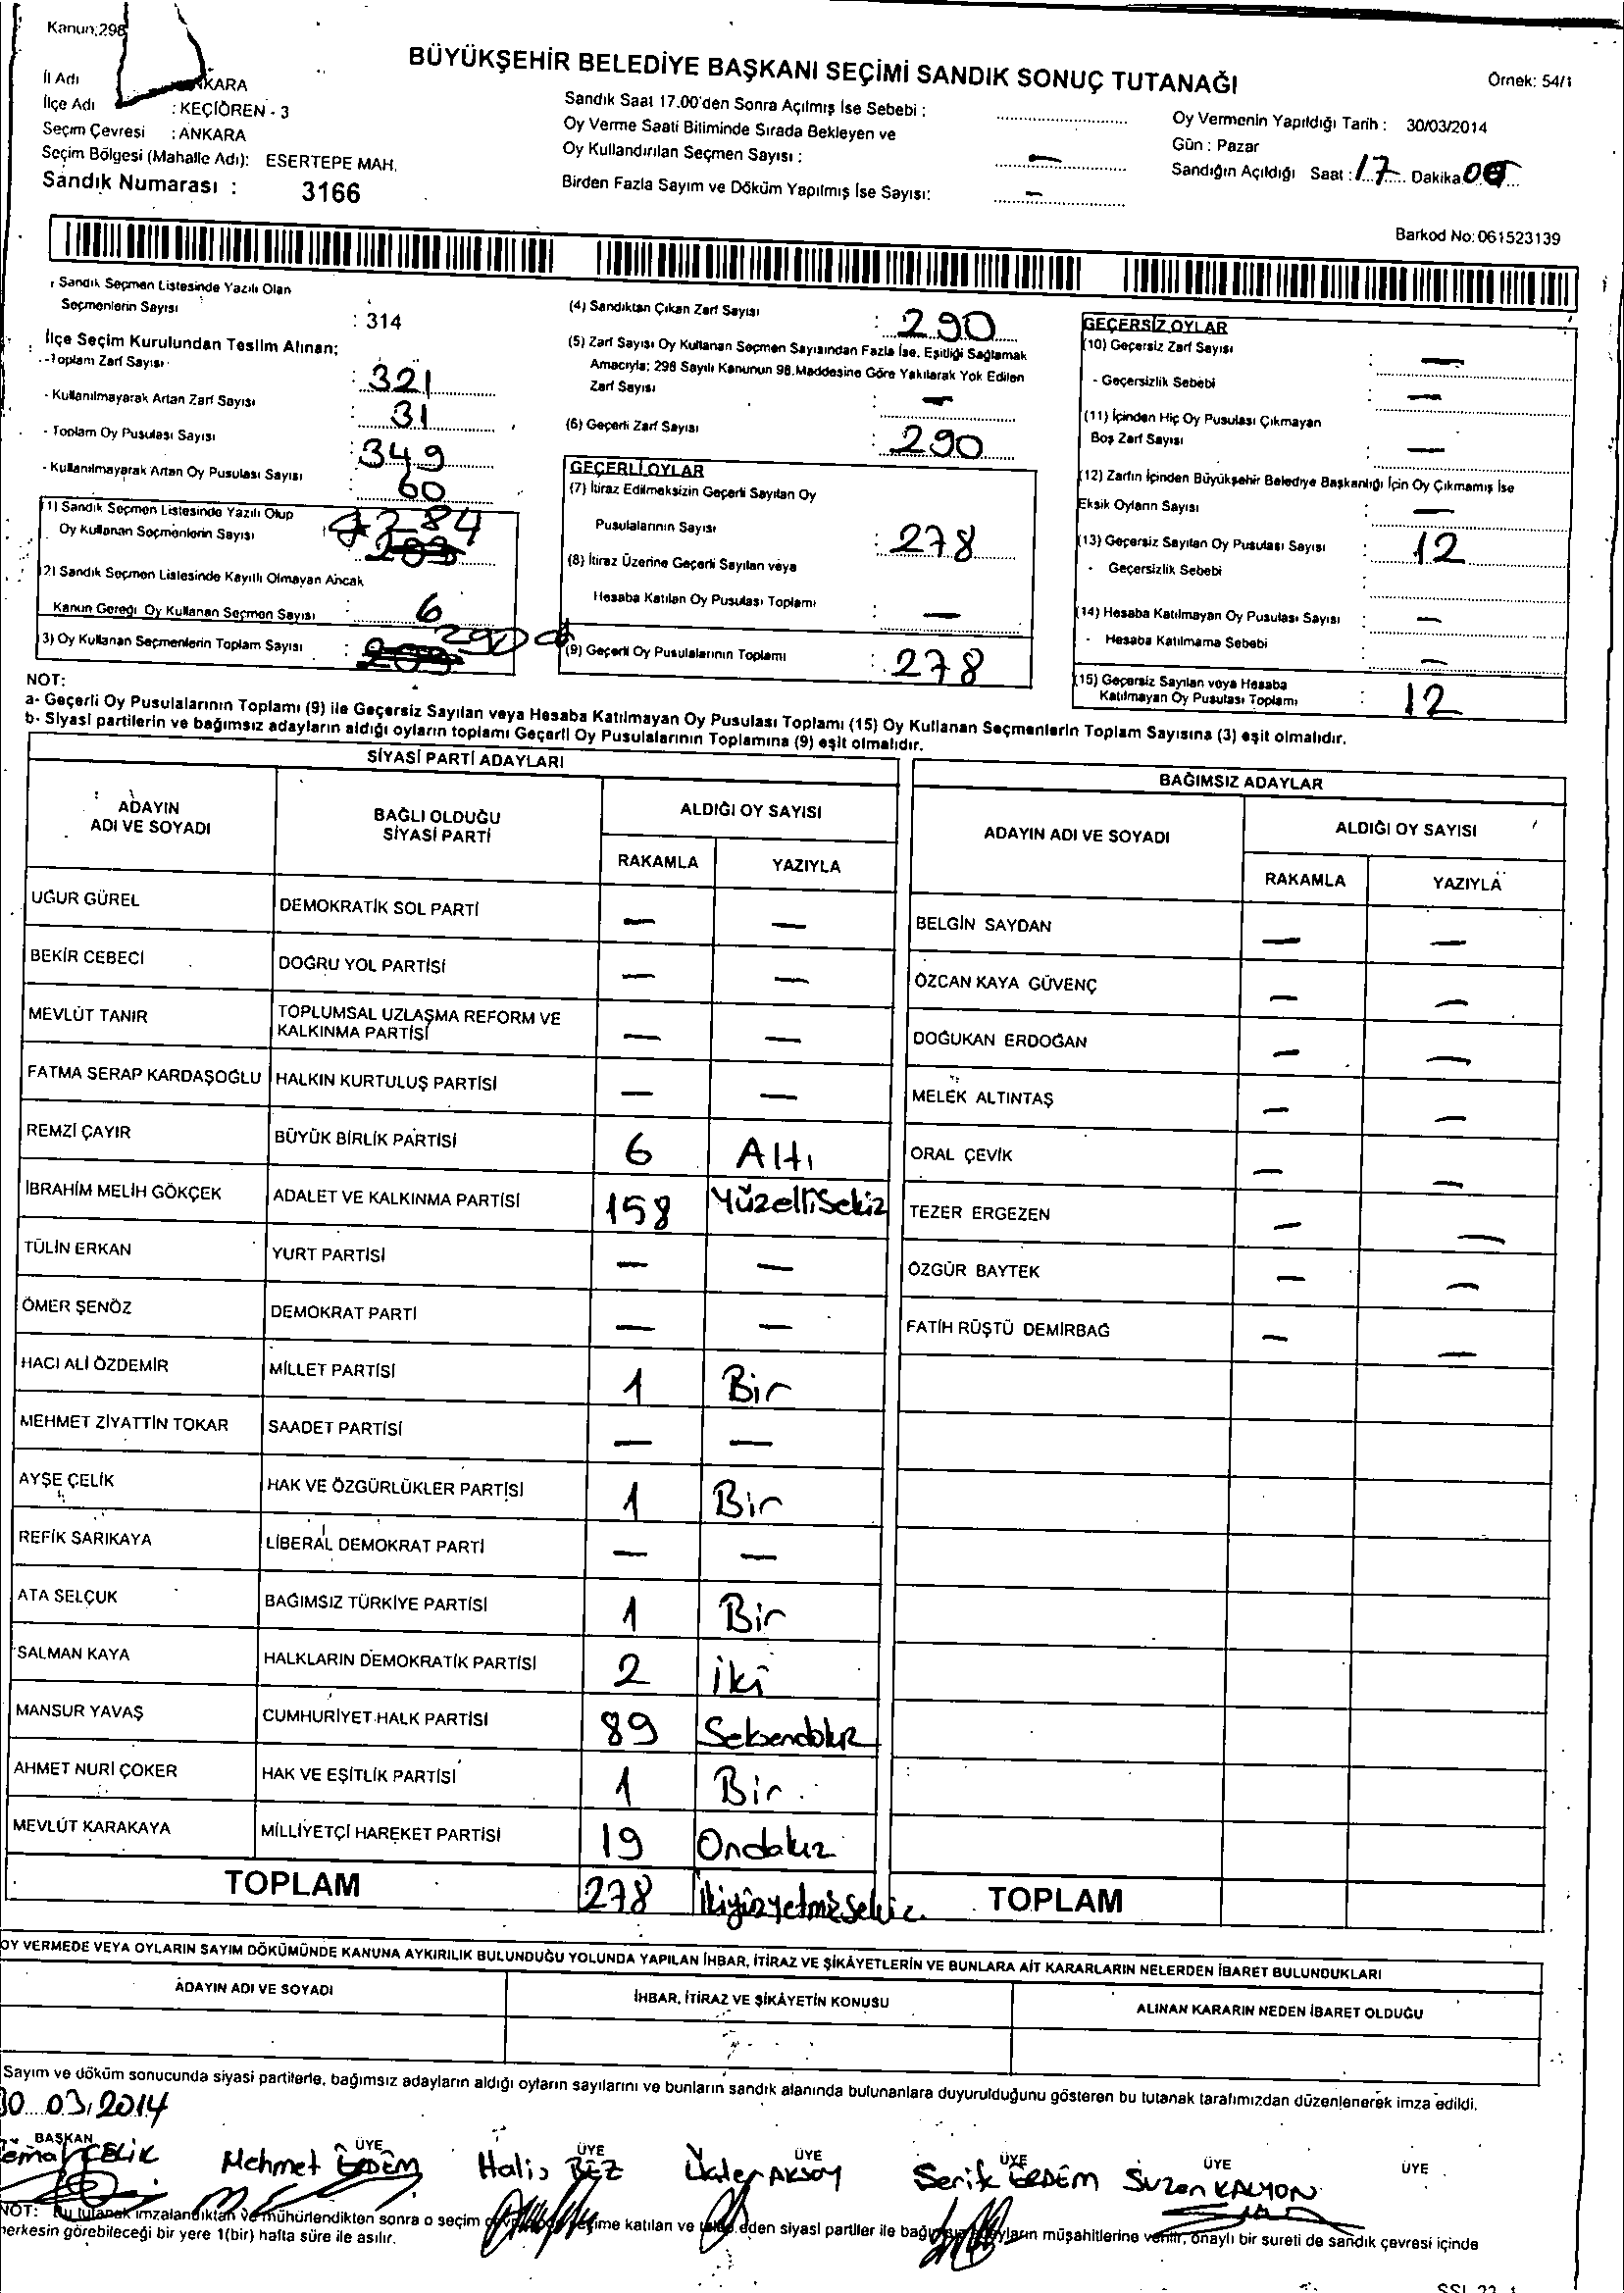 Kanun:298
BÜYÜKŞEHİR BELEDİYE BAŞKANI SEÇİMİ SANDIK SONUÇ TUTANAĞI
Örnek: 54/1
İl Adı : ANKARA
İlçe Adı : KEÇİÖREN - 3
Seçim Çevresi : ANKARA
Seçim Bölgesi (Mahalle Adı): ESERTEPE MAH.
Sandık Numarası : 3166
Sandık Saat 17.00'den Sonra Açılmış İse Sebebi :
Oy Verme Saati Bitiminde Sırada Bekleyen ve
Oy Kullandırılan Seçmen Sayısı : —
Birden Fazla Sayım ve Döküm Yapılmış İse Sayısı: —
Oy Vermenin Yapıldığı Tarih : 30/03/2014
Gün : Pazar
Sandığın Açıldığı Saat : 17 Dakika 00
Barkod No: 061523139
Sandık Seçmen Listesinde Yazılı Olan
Seçmenlerin Sayısı : 314
İlçe Seçim Kurulundan Teslim Alınan:
-Toplam Zarf Sayısı : 321
- Kullanılmayarak Artan Zarf Sayısı : 31
- Toplam Oy Pusulası Sayısı : 349
- Kullanılmayarak Artan Oy Pusulası Sayısı : 60
(1) Sandık Seçmen Listesinde Yazılı Olup
Oy Kullanan Seçmenlerin Sayısı : 284
(2) Sandık Seçmen Listesinde Kayıtlı Olmayan Ancak
Kanun Gereği Oy Kullanan Seçmen Sayısı : 6
(3) Oy Kullanan Seçmenlerin Toplam Sayısı : 290
(4) Sandıktan Çıkan Zarf Sayısı : 290
(5) Zarf Sayısı Oy Kullanan Seçmen Sayısından Fazla İse, Eşitliği Sağlamak
Amacıyla; 298 Sayılı Kanunun 98.Maddesine Göre Yakılarak Yok Edilen
Zarf Sayısı : —
(6) Geçerli Zarf Sayısı : 290
GEÇERLİ OYLAR
(7) İtiraz Edilmeksizin Geçerli Sayılan Oy
Pusulalarının Sayısı : 278
(8) İtiraz Üzerine Geçerli Sayılan veya
Hesaba Katılan Oy Pusulası Toplamı : —
(9) Geçerli Oy Pusulalarının Toplamı : 278
GEÇERSİZ OYLAR
(10) Geçersiz Zarf Sayısı : —
- Geçersizlik Sebebi : —
(11) İçinden Hiç Oy Pusulası Çıkmayan
Boş Zarf Sayısı : —
(12) Zarfın İçinden Büyükşehir Belediye Başkanlığı İçin Oy Çıkmamış İse
Eksik Oyların Sayısı : —
(13) Geçersiz Sayılan Oy Pusulası Sayısı : 12
- Geçersizlik Sebebi :
(14) Hesaba Katılmayan Oy Pusulası Sayısı : —
- Hesaba Katılmama Sebebi : —
(15) Geçersiz Sayılan veya Hesaba
Katılmayan Oy Pusulası Toplamı : 12
NOT:
a- Geçerli Oy Pusulalarının Toplamı (9) ile Geçersiz Sayılan veya Hesaba Katılmayan Oy Pusulası Toplamı (15) Oy Kullanan Seçmenlerin Toplam Sayısına (3) eşit olmalıdır.
b- Siyasi partilerin ve bağımsız adayların aldığı oyların toplamı Geçerli Oy Pusulalarının Toplamına (9) eşit olmalıdır.
SİYASİ PARTİ ADAYLARI
ADAYIN ADI VE SOYADI BAĞLI OLDUĞU SİYASİ PARTİ ALDIĞI OY SAYISI
RAKAMLA YAZIYLA
UĞUR GÜREL DEMOKRATİK SOL PARTİ — —
BEKİR CEBECİ DOĞRU YOL PARTİSİ — —
MEVLÜT TANIR TOPLUMSAL UZLAŞMA REFORM VE KALKINMA PARTİSİ — —
FATMA SERAP KARDAŞOĞLU HALKIN KURTULUŞ PARTİSİ — —
REMZİ ÇAYIR BÜYÜK BİRLİK PARTİSİ 6 Altı
İBRAHİM MELİH GÖKÇEK ADALET VE KALKINMA PARTİSİ 158 Yüzellisekiz
TÜLİN ERKAN YURT PARTİSİ — —
ÖMER ŞENÖZ DEMOKRAT PARTİ — —
HACI ALİ ÖZDEMİR MİLLET PARTİSİ 1 Bir
MEHMET ZİYATTİN TOKAR SAADET PARTİSİ — —
AYŞE ÇELİK HAK VE ÖZGÜRLÜKLER PARTİSİ 1 Bir
REFİK SARIKAYA LİBERAL DEMOKRAT PARTİ — —
ATA SELÇUK BAĞIMSIZ TÜRKİYE PARTİSİ 1 Bir
SALMAN KAYA HALKLARIN DEMOKRATİK PARTİSİ 2 iki
MANSUR YAVAŞ CUMHURİYET HALK PARTİSİ 89 Seksendokuz
AHMET NURİ ÇOKER HAK VE EŞİTLİK PARTİSİ 1 Bir
MEVLÜT KARAKAYA MİLLİYETÇİ HAREKET PARTİSİ 19 Ondokuz
TOPLAM 278 İkiyüzyetmişsekiz
BAĞIMSIZ ADAYLAR
ADAYIN ADI VE SOYADI ALDIĞI OY SAYISI
RAKAMLA YAZIYLA
BELGİN SAYDAN — —
ÖZCAN KAYA GÜVENÇ — —
DOĞUKAN ERDOĞAN — —
MELEK ALTINTAŞ — —
ORAL ÇEVİK — —
TEZER ERGEZEN — —
ÖZGÜR BAYTEK — —
FATİH RÜŞTÜ DEMİRBAĞ — —
TOPLAM
OY VERMEDE VEYA OYLARIN SAYIM DÖKÜMÜNDE KANUNA AYKIRILIK BULUNDUĞU YOLUNDA YAPILAN İHBAR, İTİRAZ VE ŞİKÂYETLERİN VE BUNLARA AİT KARARLARIN NELERDEN İBARET BULUNDUKLARI
ADAYIN ADI VE SOYADI İHBAR, İTİRAZ VE ŞİKÂYETİN KONUSU ALINAN KARARIN NEDEN İBARET OLDUĞU
Sayım ve döküm sonucunda siyasi partilerle, bağımsız adayların aldığı oyların sayılarını ve bunların sandık alanında bulunanlara duyurulduğunu gösteren bu tutanak tarafımızdan düzenlenerek imza edildi.
30.03.2014
BAŞKAN ÜYE ÜYE ÜYE ÜYE ÜYE ÜYE
ÇELİK Mehmet ERDEM Halis BEZ AKSOY Serik ERDEM Suzan KALYON
NOT: Bu tutanak imzalandıktan ve mühürlendikten sonra o seçim katılan ve eden siyasi partiler ile bağımsız adayların müşahitlerine verilir, onaylı bir sureti de sandık çevresi içinde
herkesin görebileceği bir yere 1(bir) hafta süre ile asılır.